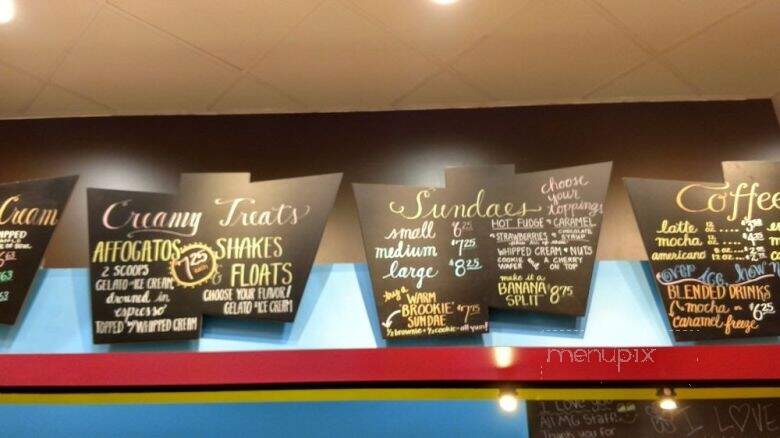 Cream
Creamy Treats
AFFOGATOS
2 SCOOPS
GELATO • ICE CREAM
drowned in
espresso
TOPPED W/ WHIPPED CREAM
7.25
SHAKES
& FLOATS
CHOOSE YOUR FLAVOR!
GELATO • ICE CREAM
Sundaes
small 6.25
medium 7.25
large 8.25
try a
WARM
BROOKIE
SUNDAE 7.75
1/2 brownie + 1/2 cookie = all yum!
choose
your
toppings
HOT FUDGE • CARAMEL
STRAWBERRIES • CHOCOLATE SYRUP
WHIPPED CREAM • NUTS
COOKIE WAFER & A CHERRY ON TOP
make it a
BANANA
SPLIT 8.75
Coffee
latte
mocha
americano
over ice
BLENDED DRINKS
mocha
caramel freeze 6.25
menupix
I love you
All MG Staff
Thank you for
I ♡ VE